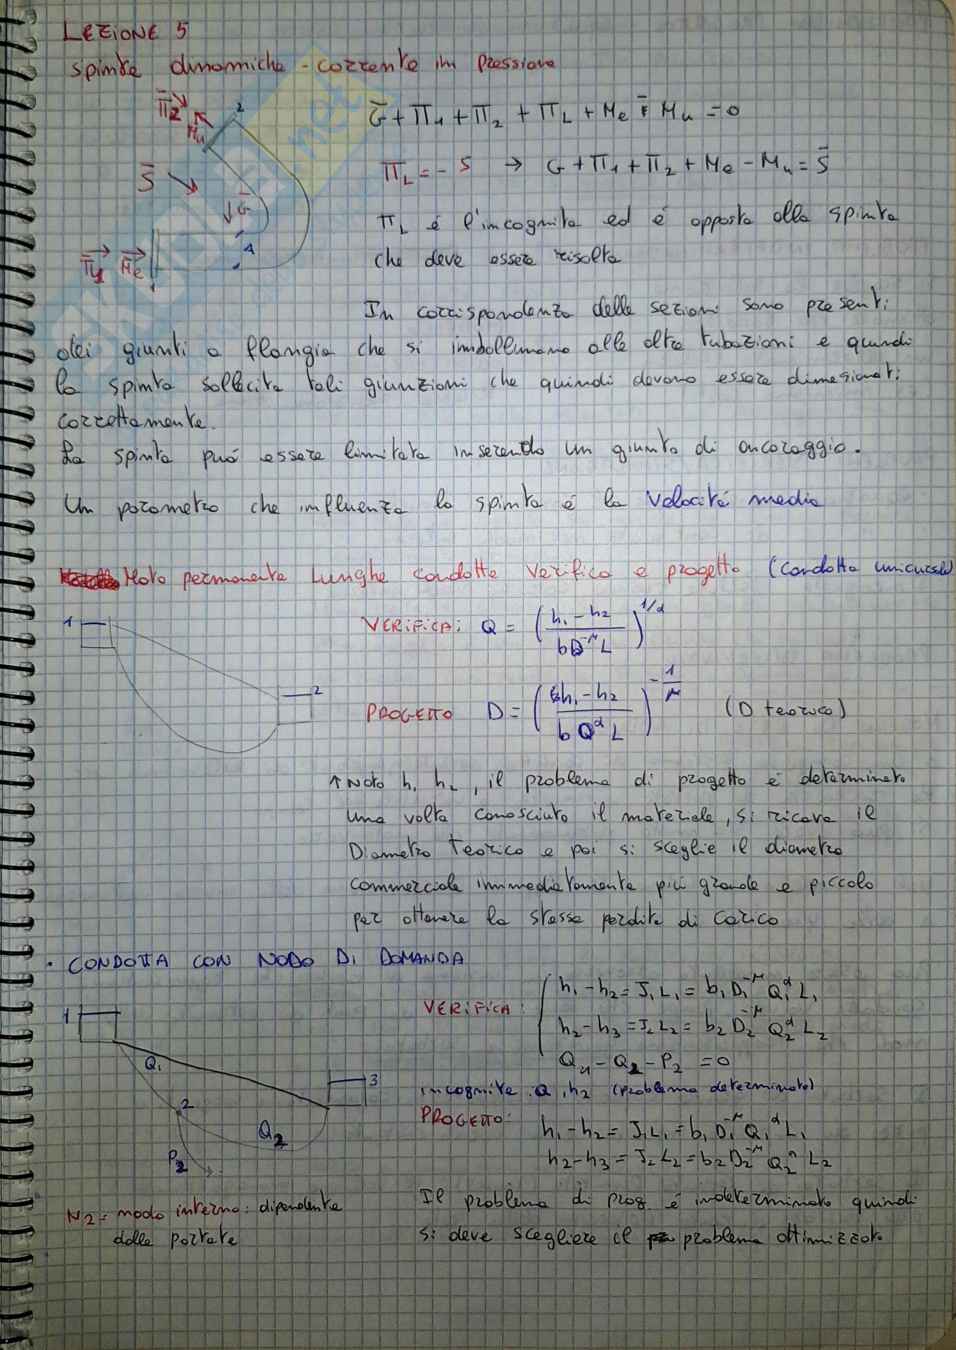 LEZIONE 5
spinte dinamiche - corrente in pressione
Π̄2
Mu
2
S̄
Ḡ
A
Π̄1 M̄e
1
Ḡ + Π1 + Π2 + ΠL + Me ∓ Mu = 0
ΠL = - S → G + Π1 + Π2 + Me - Mu = S̄
ΠL é l'incognita ed é opposta alla spinta
che deve essere risolta
In corrispondenza delle sezioni sono presenti
dei giunti a flangia che si imbullonano alle altre tubazioni e quindi
la spinta sollecita tali giunzioni che quindi devono essere dimesionati
correttamente.
La spinta può essere limitata inserendo un giunto di ancoraggio.
Un parametro che influenza la spinta é la velocità media
Moto permanente Lunghe condotte Verifica e progetto (condotta unicursale)
1
2
VERIFICA: Q = ((h1 - h2) / (b D^-μ L))^(1/α)
PROGETTO D = ((h1 - h2) / (b Q^α L))^(-1/μ) (D teorico)
↑ Noto h1 h2, il problema di progetto é determinato
una volta conosciuto il materiale, si ricava il
Diametro teorico e poi si sceglie il diametro
commerciale immediatamente più grande e piccolo
per ottenere la stessa perdita di carico
• CONDOTTA CON NODO DI DOMANDA
1
Q1
2
3
Q2
P2
VERIFICA: { h1 - h2 = J1 L1 = b1 D1^-μ Q1^α L1
h2 - h3 = J2 L2 = b2 D2^-μ Q2^α L2
Q1 - Q2 - P2 = 0
incognite Q, h2 (problema determinato)
PROGETTO: h1 - h2 = J1 L1 = b1 D1^-μ Q1^α L1
h2 - h3 = J2 L2 = b2 D2^-μ Q2^α L2
N2 = nodo interno: dipendente
dalle portate
Il problema di prog. é indeterminato quindi
si deve scegliere il problema ottimizzato
SKUOLA.net